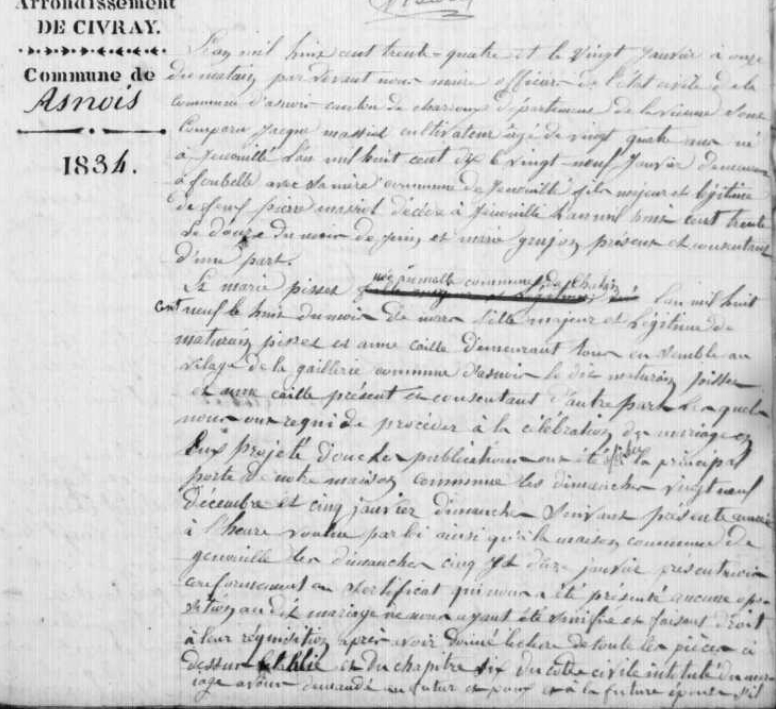 Arrondissement
DE CIVRAY.
Commune de
Asnois
1834.
L'an mil huit cent trente-quatre et le vingt janvier à onze
du matin par devant nous maire officier de l'état civile de la
commune d'asnois canton de charroux département de la vienne sont
Comparu jacque massiot cultivateur agé de vingt quatre ans né
à genouillé l'an mil huit cent dix le vingt-neuf janvier demeurant
à avec sa mère commune de genouillé fils majeur et légitime
de feux pierre massiot décédé à genouillé l'an mil huit cent trente
le douze du mois de juin et marie présent et consentant
d'une part.
Et marie pisses née commune de l'an mil huit
cent neuf le huit du mois de mars fille majeur et légitime de
maturin pisses et anne caille demeurant tous en semble au
vilage de la gaillerie commune d'asnois le dit maturin pisses
et anne caille présent et consentant d'autre part lesquels
nous ont requi de procéder à la célébration du mariage en
eux projeté dont les publications ont été la principal
porte de notre maison commune les dimanches vingt neuf
décembre et cinq janvier dimanches suivant présente année
à l'heure voulue par loi ainsi qu'à la maison commune de
genouillé les dimanches cinq et douze janvier présent mois
conformément au certificat qui nous a été présenté aucune opo-
sition au dit mariage ne nous ayant été sinifié et faisant droit
à leur réquisition après avoir donné lecture de toute les pièces ci
dessus et du chapitre six du code civile intitulé du mar-
iage avons demandé au futur époux et à la future épouse s'il